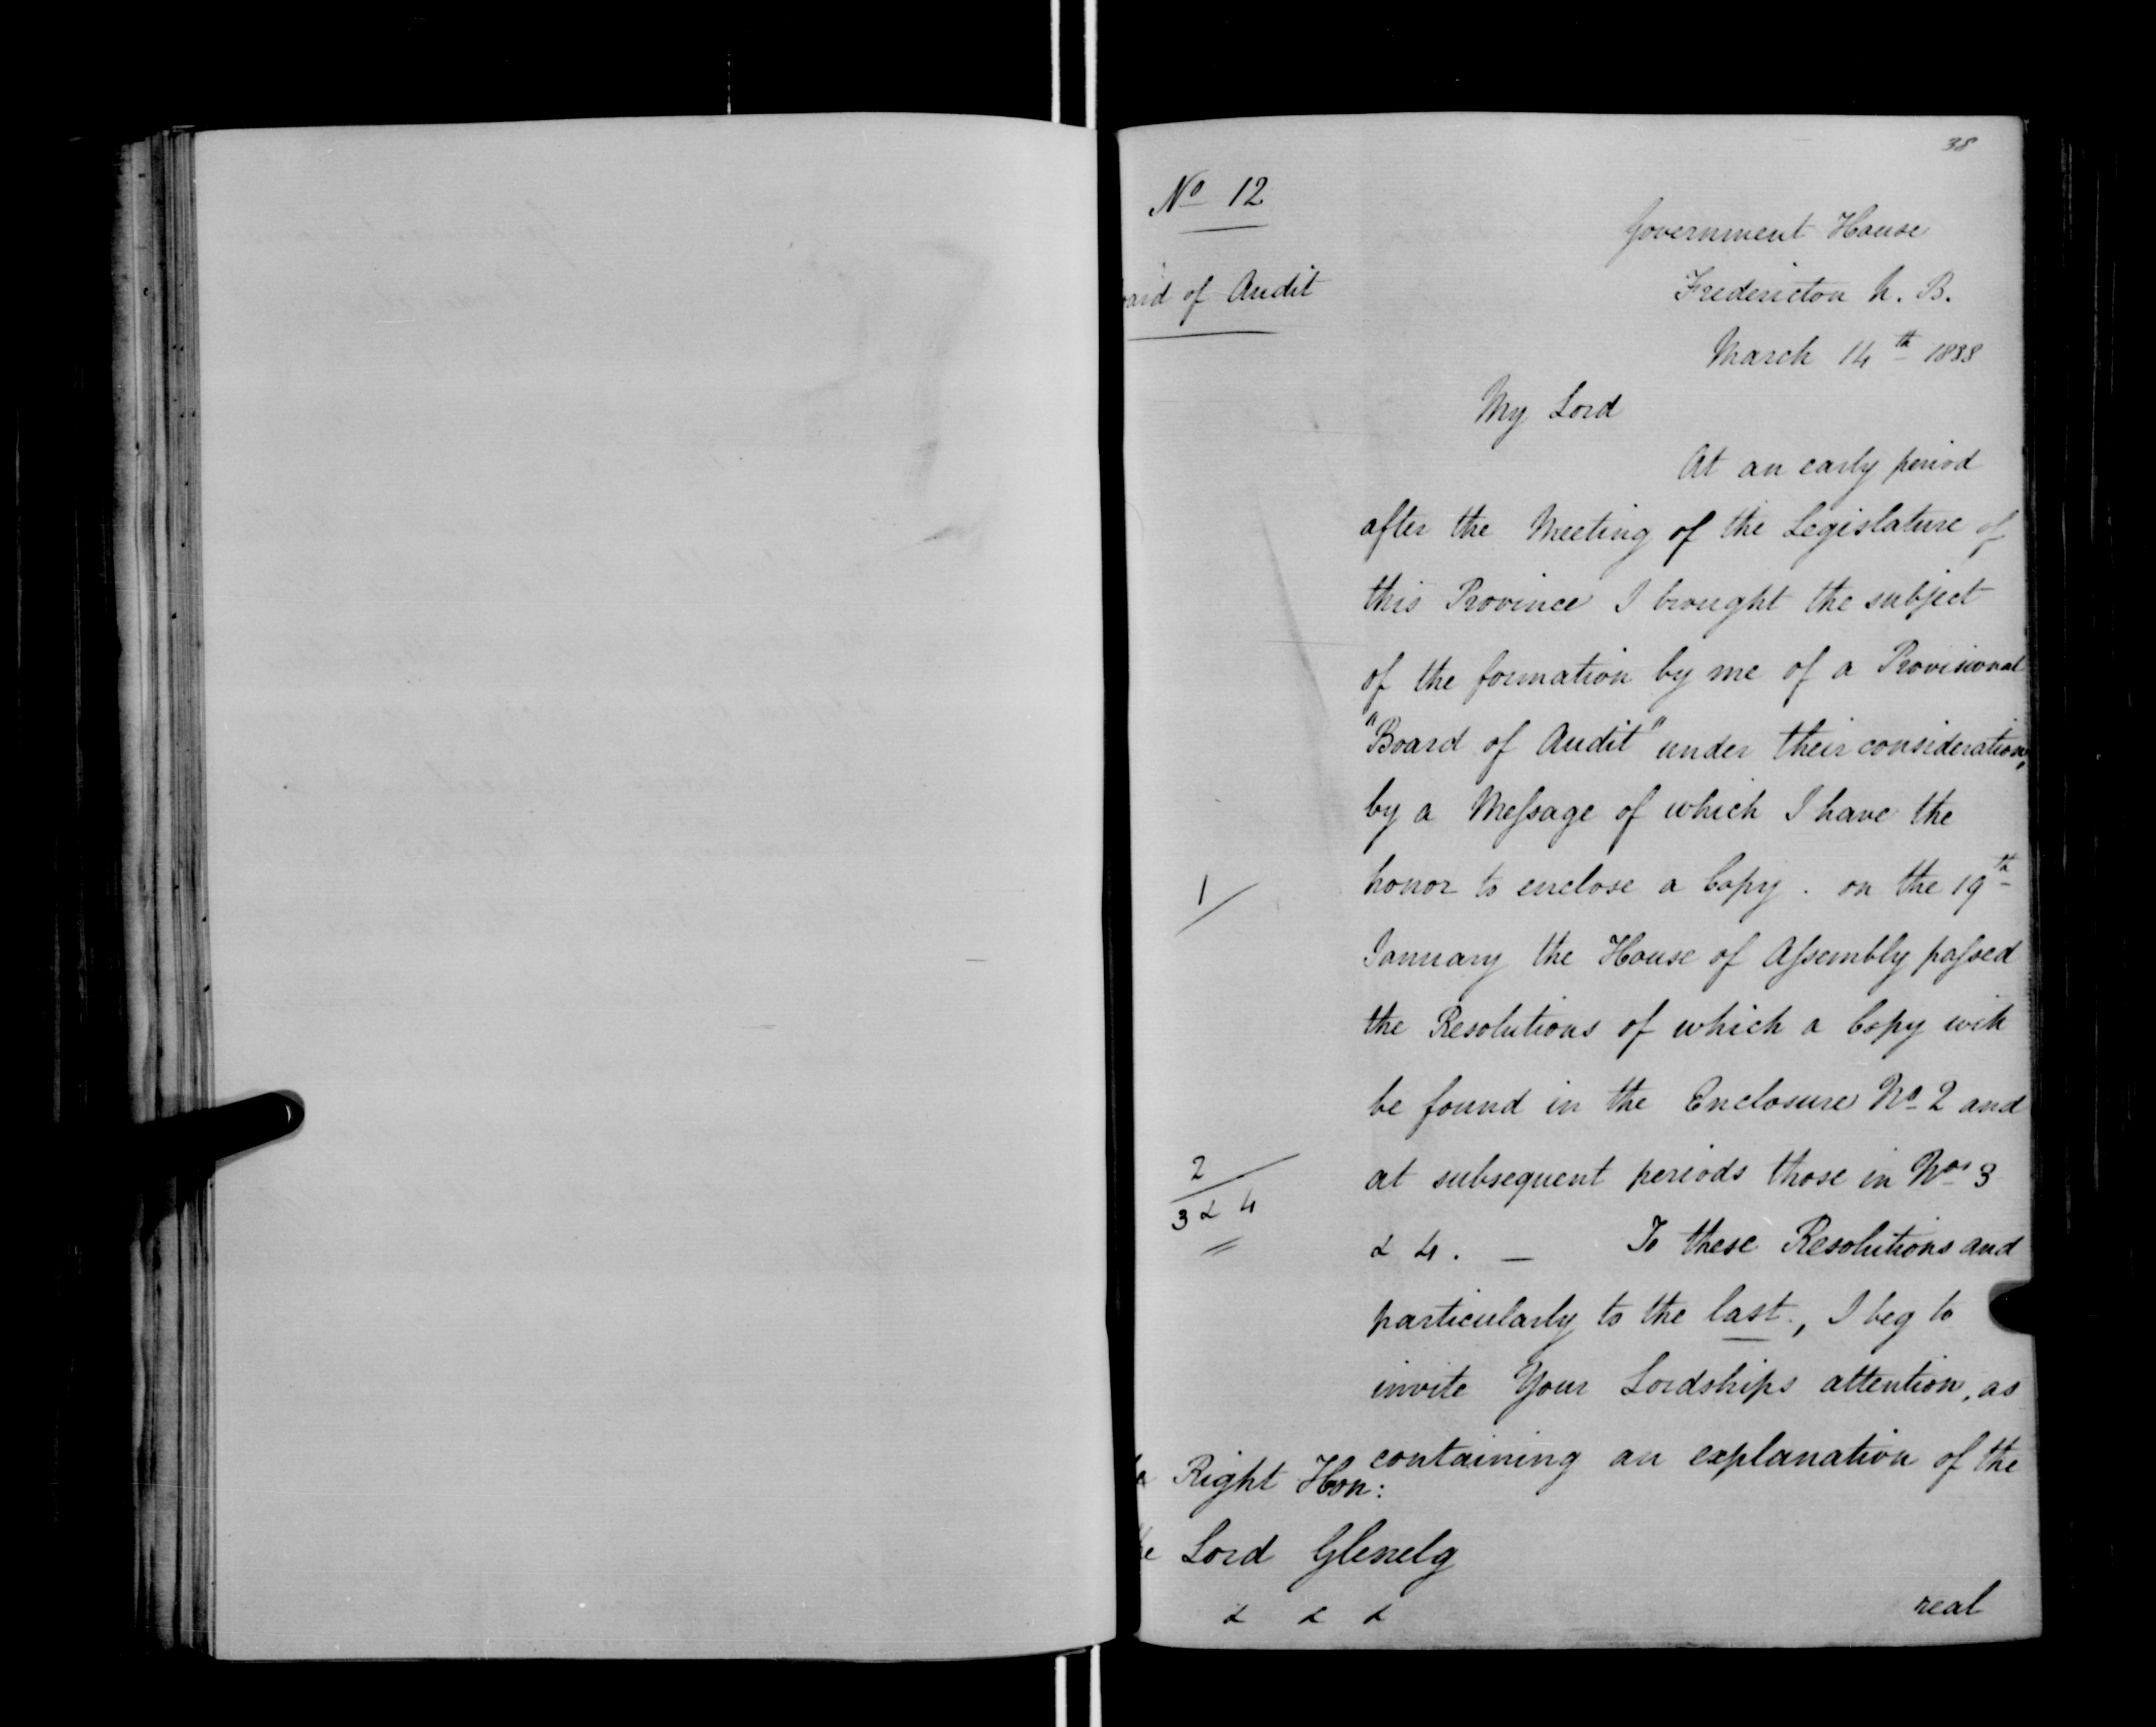 38
No 12
Board of Audit
Government House
Fredericton N. B.
March 14th 1838
My Lord
At an early period
after the Meeting of the Legislature of
this Province I brought the subject
of the formation by me of a Provisional
"Board of Audit" under their consideration,
by a Meſsage of which I have the
1
honor to enclose a Copy. on the 19th
January the House of Aſsembly paſsed
the Resolutions of which a Copy will
be found in the Enclosure No 2 and
2
at subsequent periods those in Nos 3
3 & 4
& 4. — To these Resolutions and
particularly to the last, I beg to
invite Your Lordships attention, as
containing an explanation of the
Right Hon:
Lord Glenelg
& & &
real